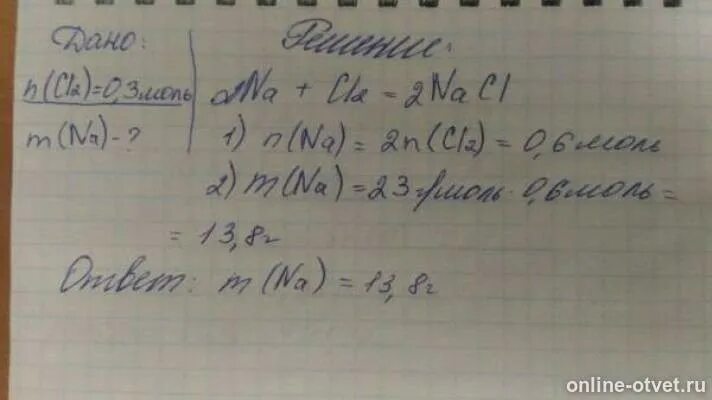 Дано:
n(Cl₂)=0,3моль
m(Na)-?
Решение:
2Na + Cl₂ = 2NaCl
1) n(Na) = 2n(Cl₂) = 0,6моль
2) m(Na) = 23г/моль · 0,6моль =
= 13,8г
Ответ: m(Na) = 13,8г
online-otvet.ru